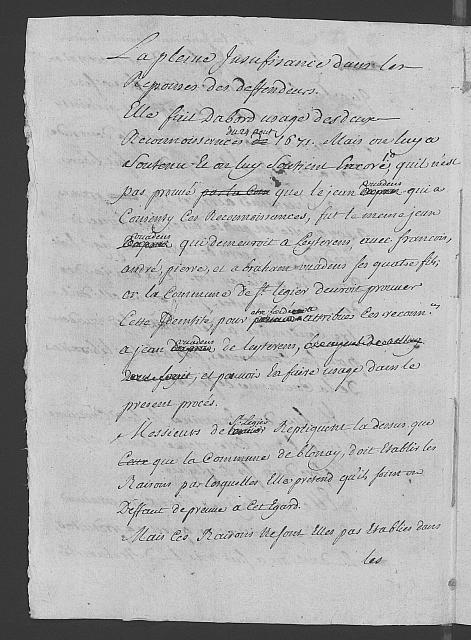 La pleine Insufisance dans les
Reponses des deffendeurs.
Elle fait Dabord usage des deux
Reconnoissences du 29 aout 1671. Mais on luy a
Soutenu Et on luy Soutient Encore, 1° qu'il n'est
pas prouvé par la que le jean ouadens qui a
Consenty Ces Reconnoissences, fut le meme jean
ouadens qui demeuroit a Leyterens, avec françois,
andré, pierre, et abraham ouadens ses quatre fils,
or la Commune de St. Legier devroit prouver
Cette Identité, pour attribuer Ces reconn.ces
a jean ouadens de Leyterens,
et pouvoir En faire usage dans le
present procés.
Messieurs de St. Legier Repliquent la dessus que
Ceux que la Commune de blonay, doit Etablir les
Raisons par lesquelles Elle pretend qu'ils sont en
Deffaut de preuve a Cet Egard.
Mais Ces Raisons Ne sont Elles pas Etablies dans
les